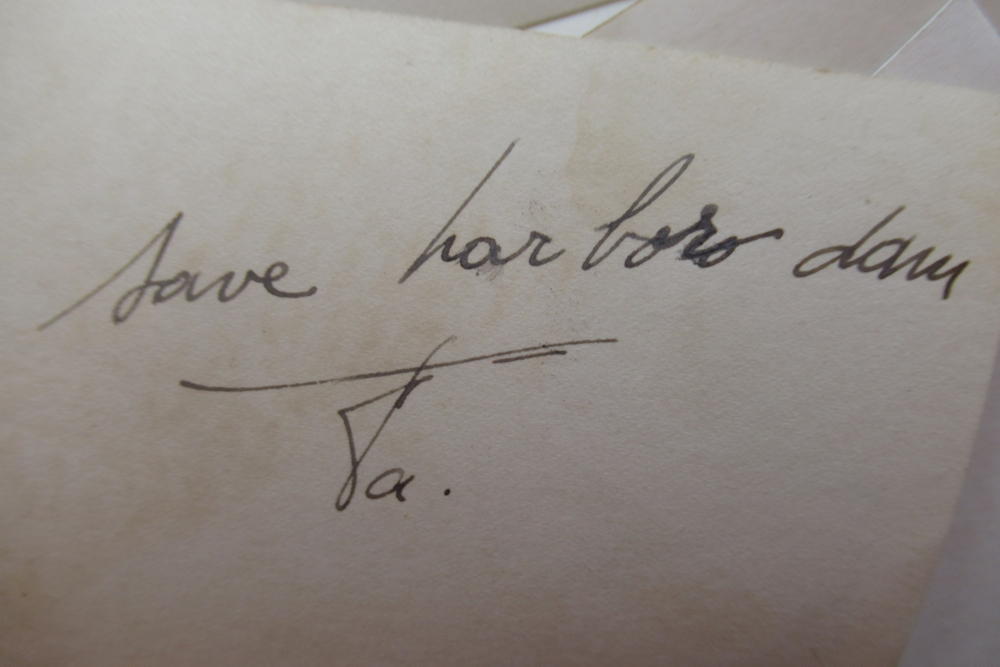 save harboro dam
Va.